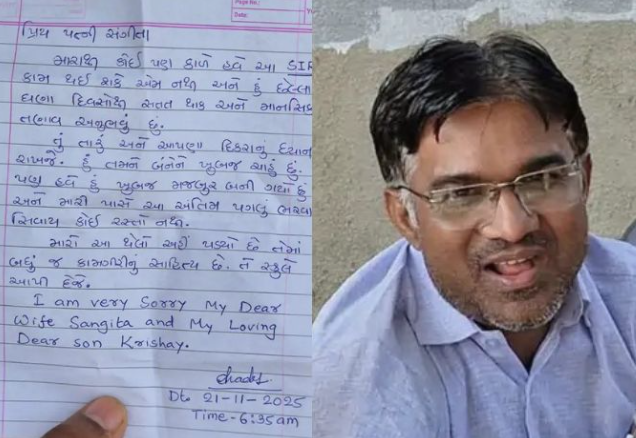 Page No.:
Date:
પ્રિય પત્ની સંગીતા
મારાથી કોઈ પણ કાળે હવે આ SIR
કામ થઈ શકે એમ નથી અને હું
ઘણા દિવસોથી સતત થાક અને માનસિક
તણાવ અનુભવું છું.
તું તારું અને આપણા દિકરાનું ધ્યાન
રાખજે. હું તમને બંનેને ખુબજ ચાહું છું.
પણ હવે હું ખુબજ મજબુર બની ગયો છું
અને મારી પાસે આ અંતિમ પગલું ભરવા
સિવાય કોઈ રસ્તો નથી.
મારો આ થેલો અહીં પડ્યો છે તેમાં
બધું જ કામગીરીનું સાહિત્ય છે. તે સ્કુલે
આપી દેજે.
I am very Sorry My Dear
Wife Sangita and My Loving
Dear son Krishay.
Dt. 21-11-2025
Time-6:35am